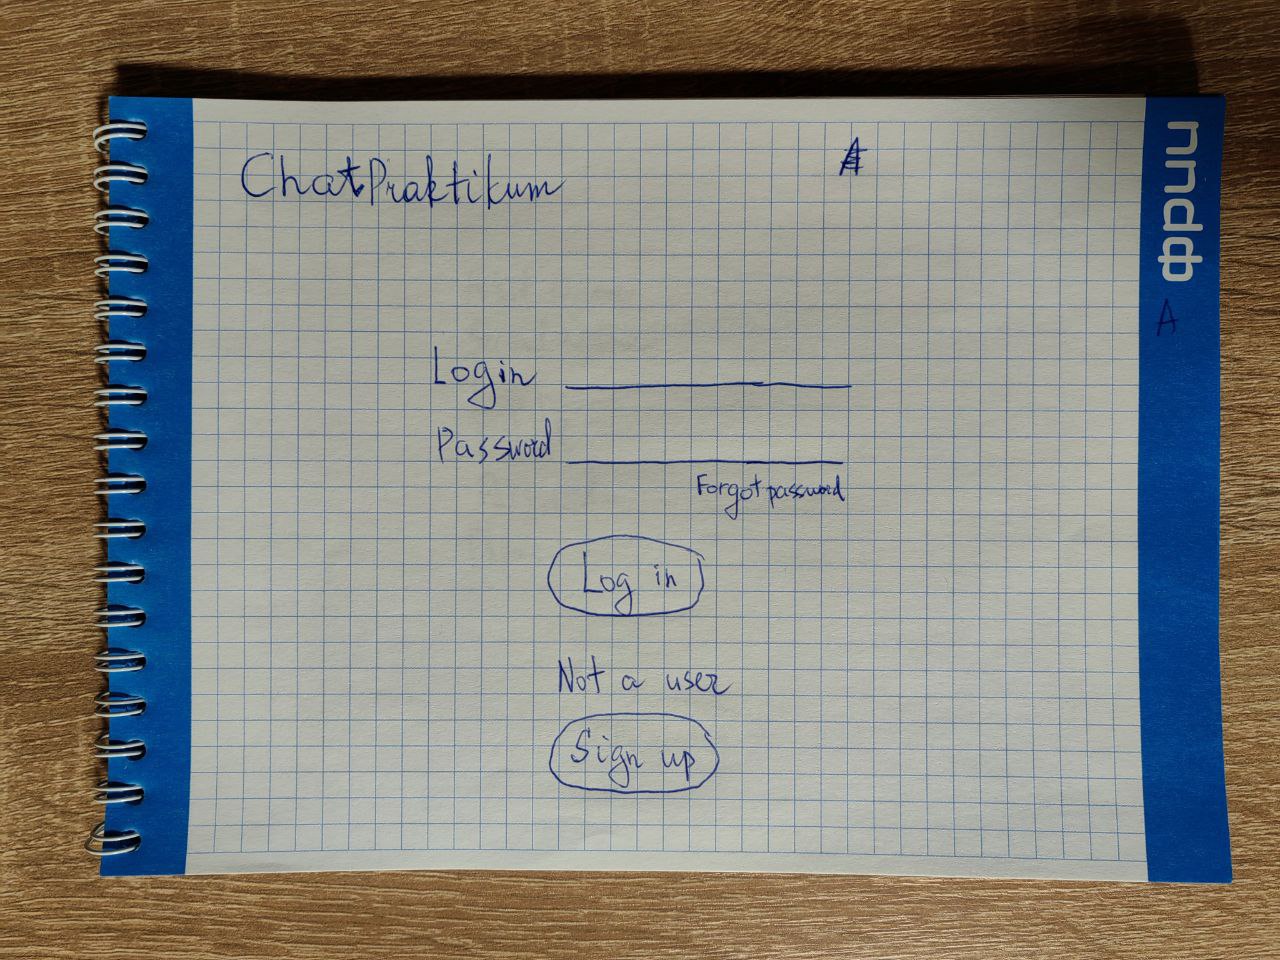 ChatPraktikum
Login
Password
Forgot password
Log in
Not a user
Sign up
A